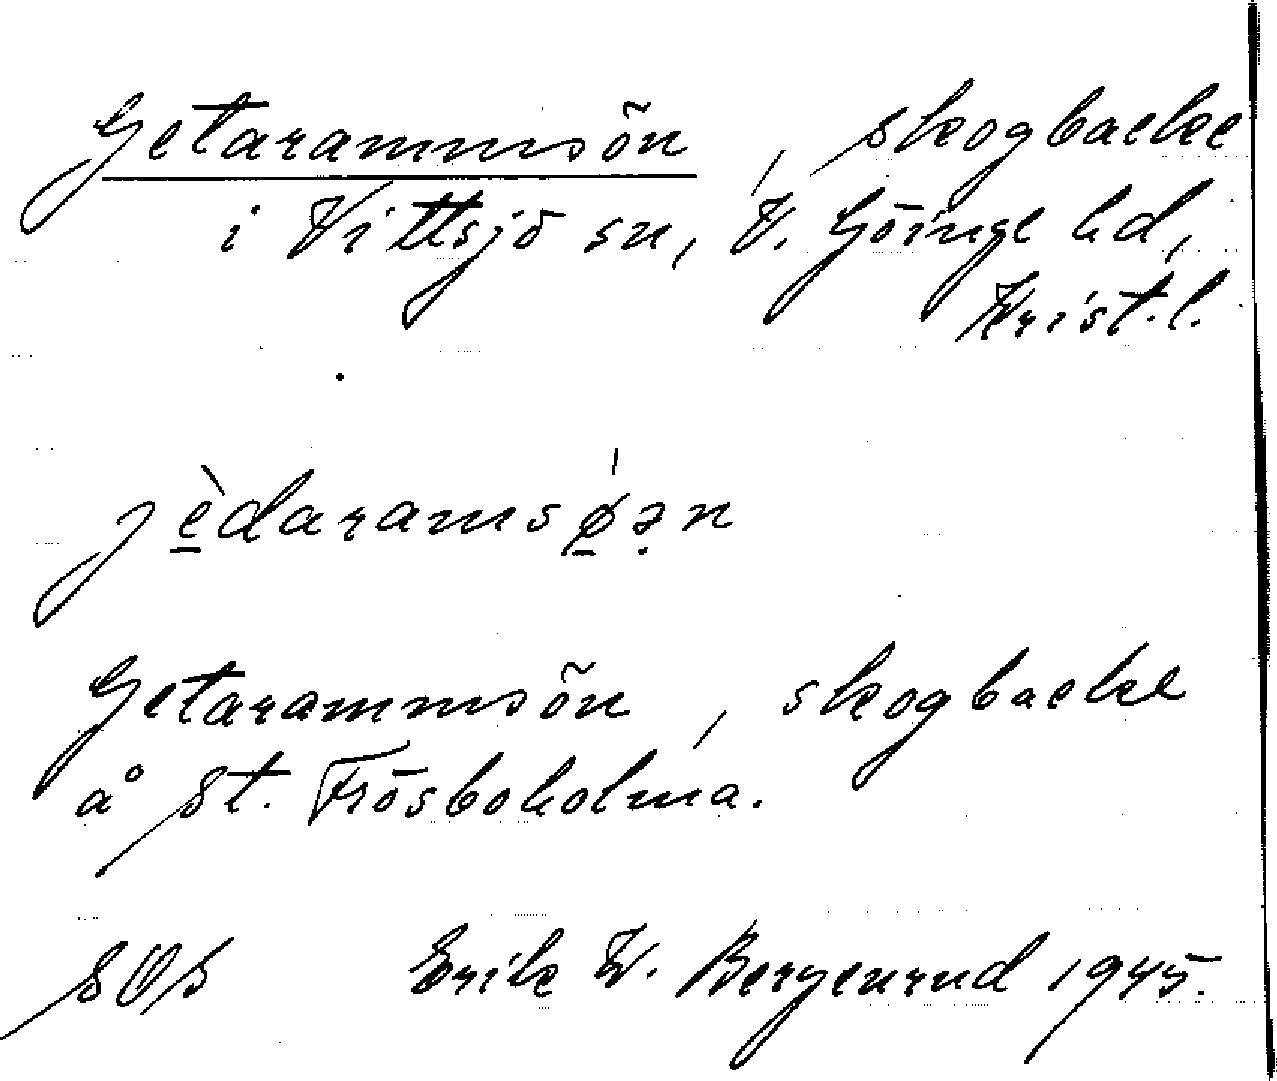 Getarammsön, skogbacke
i Vittsjö sn, V. Göinge hd,
Krist. l.
jèdaramsǿən
Getarammsön, skogbacke
å St. Frösboholma.
SOS Erik W. Bergenrud 1945.